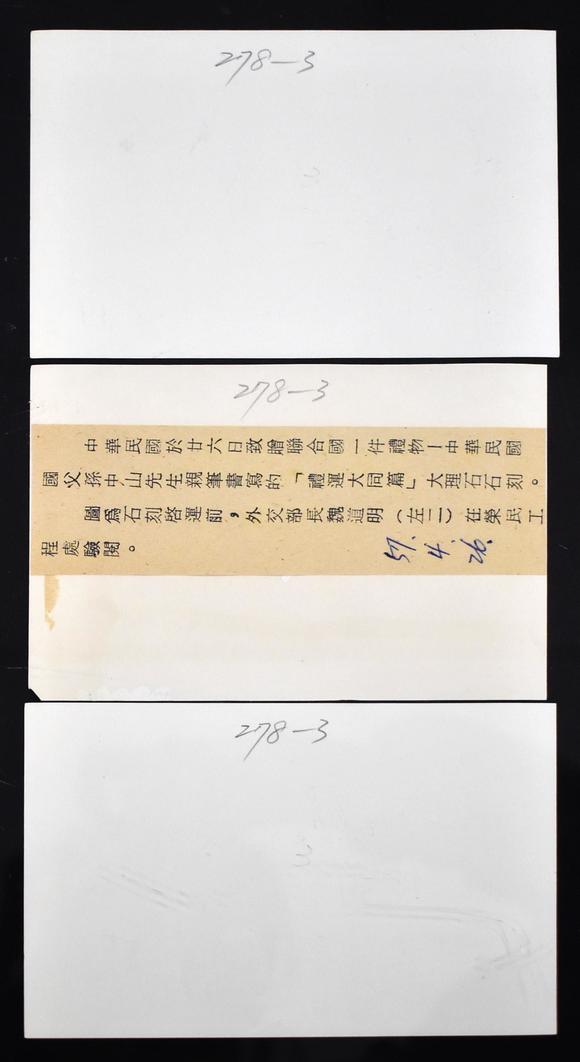 278-3
278-3
中華民國於廿六日致贈聯合國一件禮物—中華民國
國父孫中山先生親筆書寫的「禮運大同篇」大理石石刻。
圖為石刻啓運前，外交部長魏道明（左二）在榮民工
程處驗閱。
57. 4. 26.
278-3